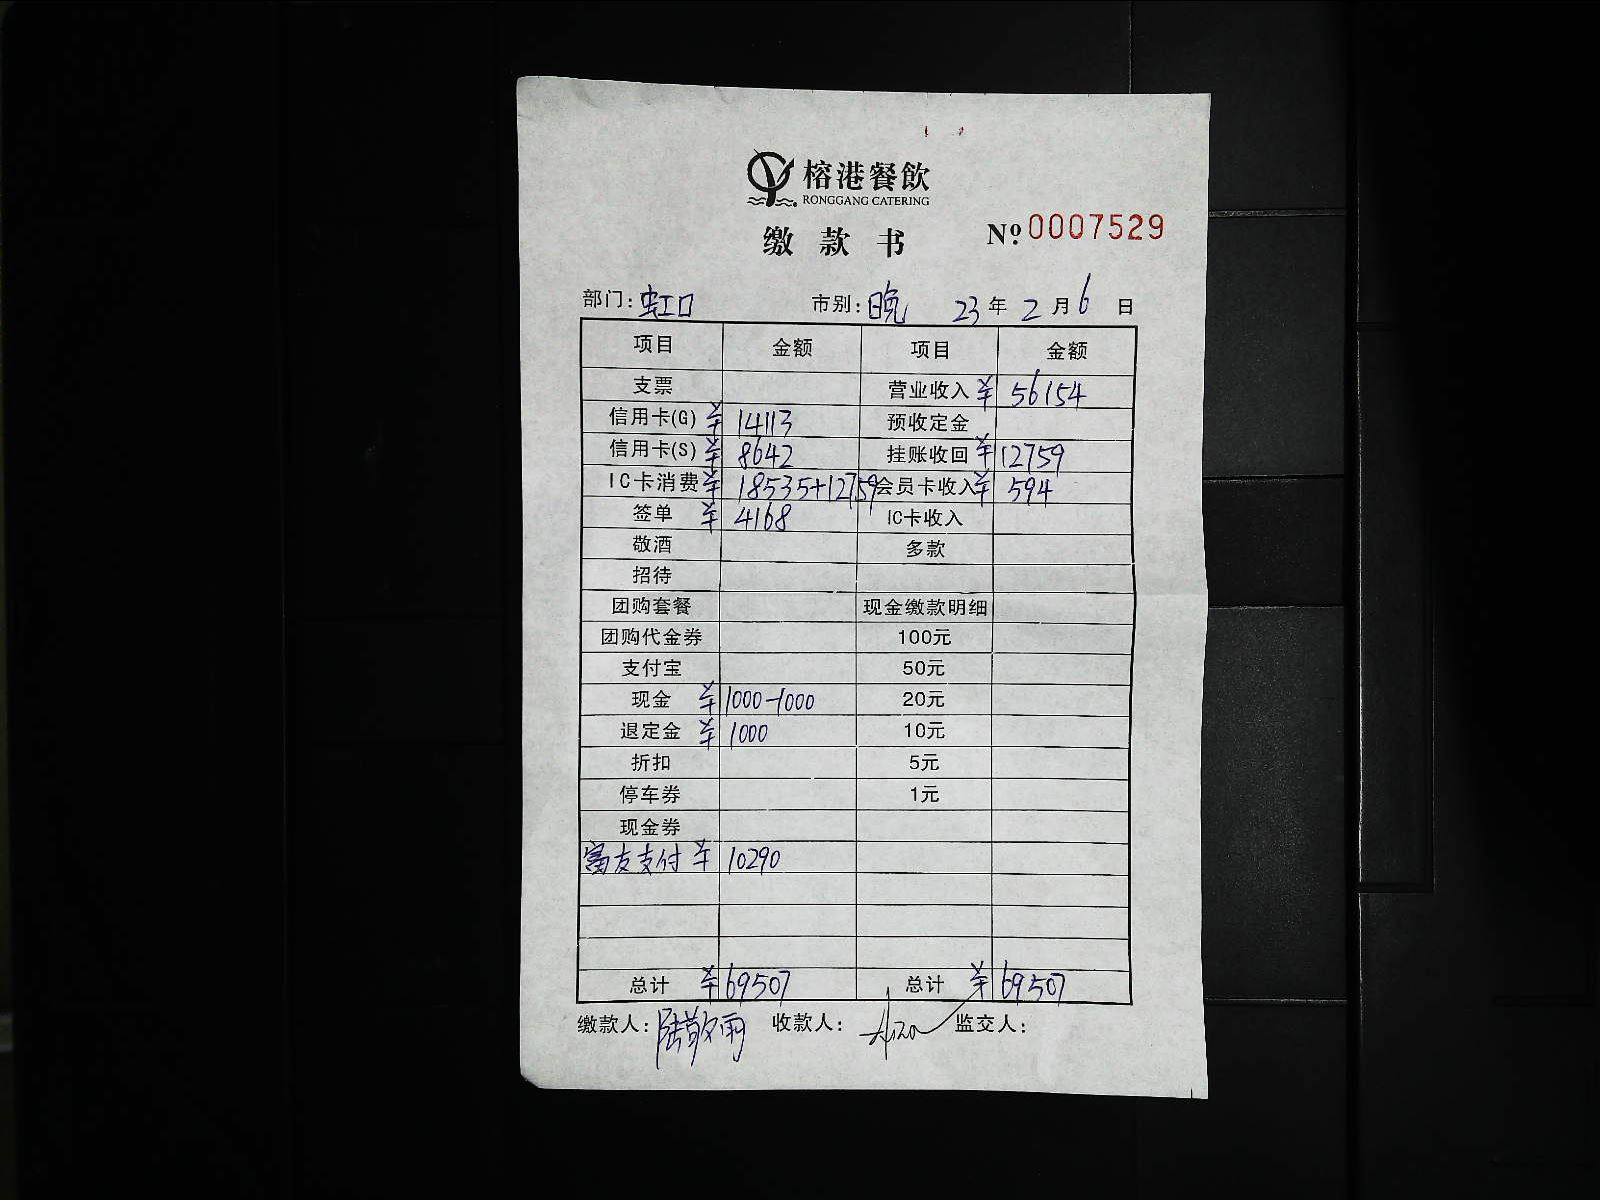 榕港餐飲
RONGGANG CATERING
缴款书 Nº 0007529
部门：虹口 市别：晚 23年2月6日
项目 金额 项目 金额
支票 营业收入 ¥ 56154
信用卡(G) ¥ 14113 预收定金
信用卡(S) ¥ 8642 挂账收回 ¥ 12759
IC卡消费 ¥ 18535+12759 会员卡收入 ¥ 594
签单 ¥ 4168 IC卡收入
敬酒 多款
招待
团购套餐 现金缴款明细
团购代金券 100元
支付宝 50元
现金 ¥ 1000-1000 20元
退定金 ¥ 1000 10元
折扣 5元
停车券 1元
现金券
富友支付 ¥ 10290
总计 ¥ 69507 总计 ¥ 69507
缴款人：陆敬雨 收款人： 监交人：